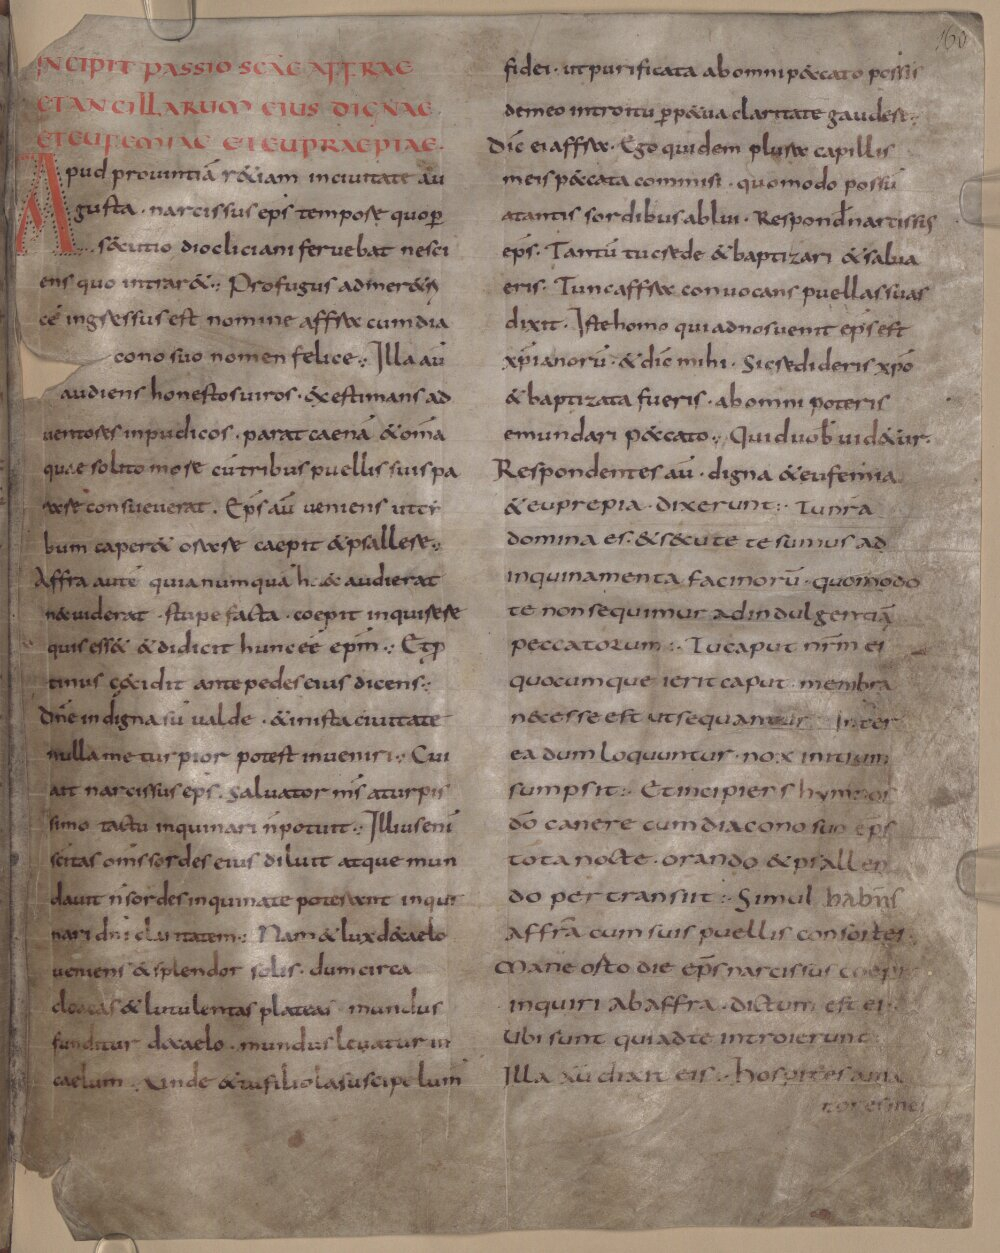 160
INCIPIT PASSIO SCAE AFFRAE
ET ANCILLARUM EIUS DIGNAE
ET EUFEMIAE ET EUPRAEPIAE.
Apud provintiā r&iam incivitate au
gusta · narcissus ep̄s tempore quo per
s&cutio diocliciani fervebat nesci
ens quo intrar& ·: Profugus ad
cē ingressus est nomine affrae cum dia
cono suo nomen felice ·: Illa aū
audiens honestos viros · & estimans ad
ventores inpudicos · parat caenā & om̄a
quae solito more cū tribus puellis suis pa
rare consueverat . Ep̄s aū veniens ut ci
bum caper& orare caepit & psallere ·:
Affra autē quia numquā hoc & audierat
n& viderat · stupefacta · coepit inquirere
quis ess& & didicit hunc eē ep̄m ·: Et p
tinus c&cidit ante pedes eius dicens ·:
Dn̄e indigna sū valde · & in ista civitate
nulla me turpior potest inveniri ·: Cui
ait narcissus ep̄s · Salvator nr̄s a turpis
simo tactu inquinari n̄ potuit ·: Illius enī
sc̄itas om̄s sordes eius diluit atque mun
davit n̄ sordes inquinate poterunt inqui
nari dn̄i claritatem ·: Nam & lux de caelo
veniens & splendor solis · dum circa
cloacas & lutulentas plateas mundus
funditur de caelo · mundus levatur in
caelum · Unde & tu filiola suscipe lum
fidei · ut purificata ab omni p&cato possis
de meo introitu perp&ua claritate gaudere ·:
Dic̄ ei affrae · Ego quidem plus ae capillis
meis p&cata commisi · quomodo possū
a tantis sordibus ablui · Respond̄ narcissus
ep̄s · Tantū tu crede & baptizari & salva
eris · Tunc affrae convocans puellas suas
dixit · Iste homo qui ad nos venit ep̄s est
xp̄ianorū · & dic̄ mihi · Si credideris xp̄o
& baptizata fueris · ab omni poteris
emundari p&cato ·: Quid vob̄ vid&ur ·
Respondentes aū · digna & eufemia
& euprepia · dixerunt ·: Tu nr̄a
domina es · & s&cute te sumus ad
inquinamenta facinorū · quomodo
te non sequimur ad indulgentiā
peccatorum ·: Tu caput nr̄m ei
quocumque ierit caput membra
necesse est ut sequantur Inter
ea dum loquuntur · nox initium
sumpsit ·: Et incipiens hymnos
dō canere cum diacono suo ep̄s
tota nocte · orando & psallen
do pertransiit ·: Simul
affra cum suis puellis
Mane orto die ep̄s narcissus coepit
inquiri ab affra · dictum est ei ·
Ubi sunt qui ad te introierunt
Illa aū dixit eis · hospites ama
tores mei